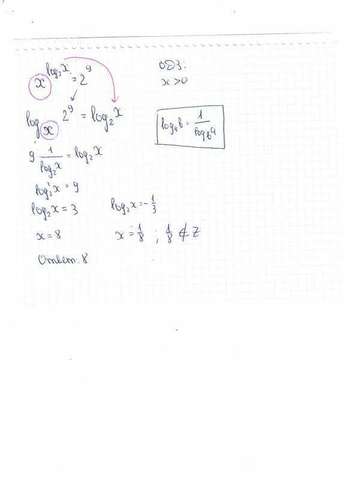 x^{log₂x} = 2⁹
ОДЗ:
x > 0
log_x 2⁹ = log₂x
log_a b = 1/log_b a
9 · 1/log₂x = log₂x
log₂²x = 9
log₂x = 3
log₂x = -1/3
x = 8
x = 1/8 ; 1/8 ∉ Z
Ответ: 8